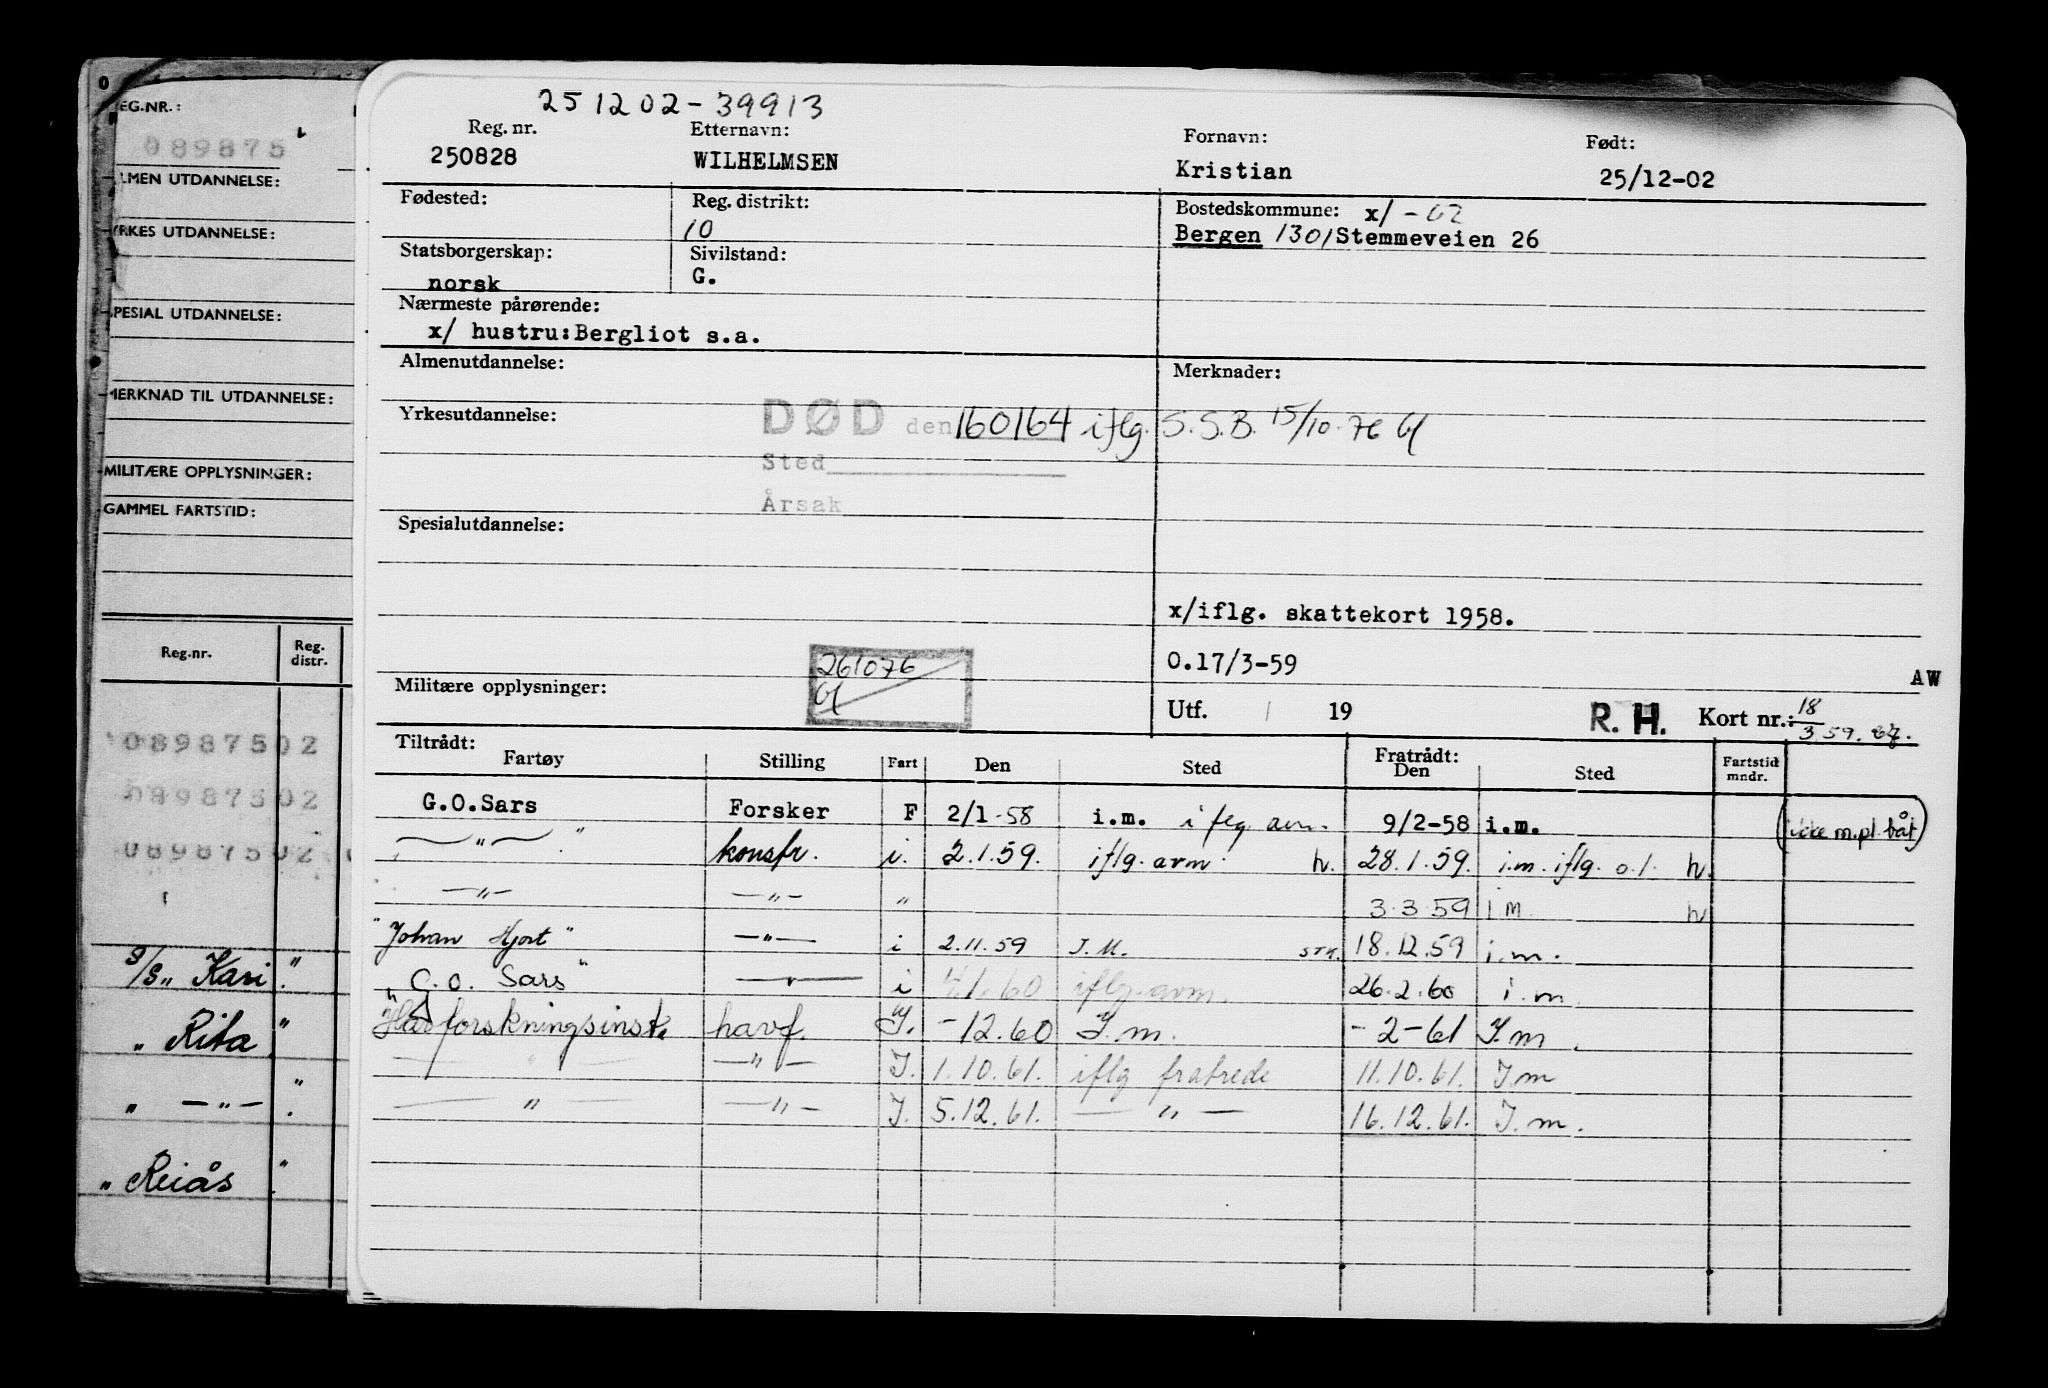 REG.NR.:
089875
ALMEN UTDANNELSE:
YRKES UTDANNELSE:
SPESIAL UTDANNELSE:
MERKNAD TIL UTDANNELSE:
MILITÆRE OPPLYSNINGER:
GAMMEL FARTSTID:
Reg.nr. Reg. distr.
08987502
08987502
08987502
S/S " Kari "
" Rita "
" — " — "
" Reiås "
251202-39913
Reg. nr. Etternavn: Fornavn: Født:
250828 WILHELMSEN Kristian 25/12-02
Fødested: Reg. distrikt: Bostedskommune: x/ -62
10 Bergen 1301 Stemmeveien 26
Statsborgerskap: Sivilstand:
norsk G.
Nærmeste pårørende:
x/ hustru:Bergliot s.a.
Almenutdannelse: Merknader:
Yrkesutdannelse: DØD den 160164 iflg. S.S.B. 15/10-76
Sted
Årsak
Spesialutdannelse:
x/iflg. skattekort 1958.
261076
O.17/3-59 AW
Militære opplysninger:
Utf. / 19 R. H. Kort nr.: 18/3 59.
Tiltrådt: Fratrådt:
Fartøy Stilling Fart Den Sted Den Sted Fartstid mndr.
G.O.Sars Forsker F 2/1-58 i.m. iflg. avm. 9/2-58 i.m. (ikke m.pl. båt)
— " — " konstr. i. 2.1.59. iflg. avm. h. 28.1.59. i.m. iflg. o.l. h.
— " — — " — " 3.3.59 i m h
"Johan Hjort" — " — i 2.11.59 I.M. STK. 18.12.59 i.m.
"G.O. Sars" — " — i 4.1.60 iflg. avm. 26.2.60 i.m.
"Havforskningsinst. havf. I. -12.60 I.m. -2-61 I.m.
— " — — " — I. 1.10.61. iflg fratrede 11.10.61. I.m
— " — — " — I. 5.12.61. — " — 16.12.61. I.m.